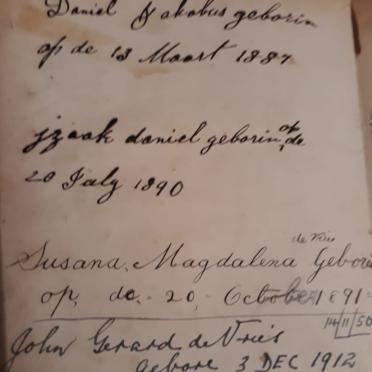 Daniel Jakobus geborin
op de 13 Maart 1887
jzaak daniel geborin op de
20 Jaly 1890
de Vries
Susana Magdalena Gebori
op de 20 October 1891
14/11/50
John Gerard de Vries
gebore 3 DEC 1912